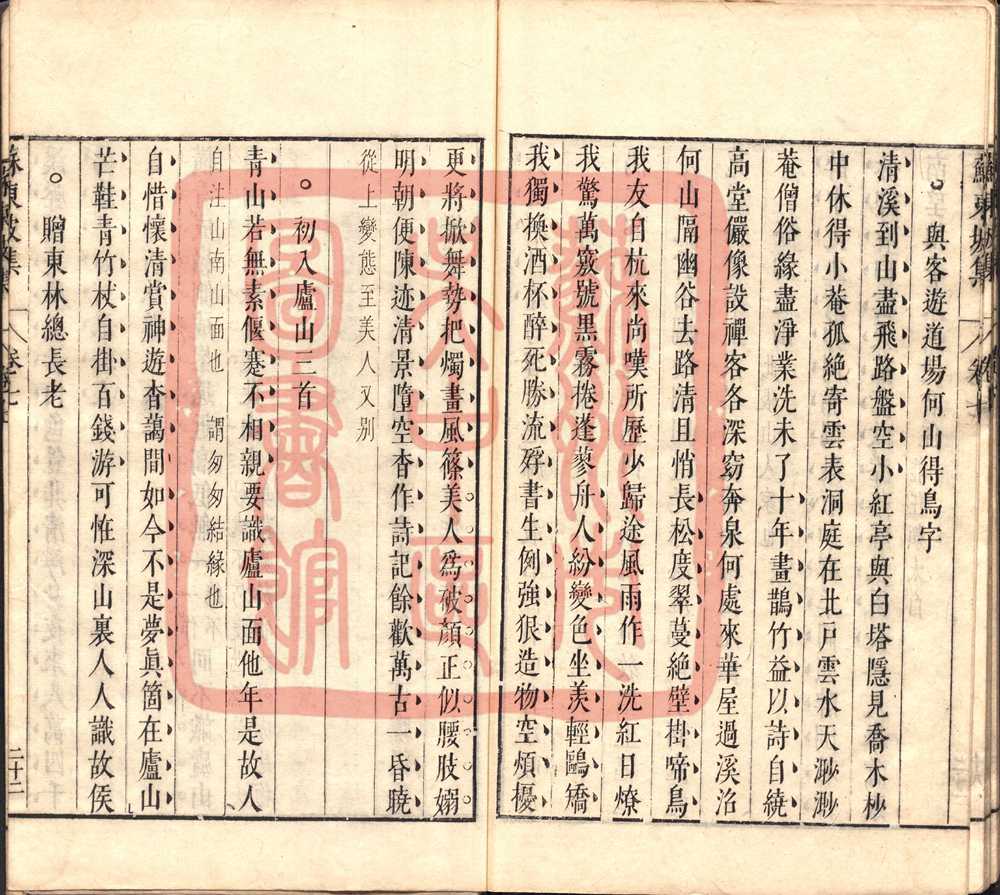 蘇東坡集 卷
與客遊道場何山得鳥字
清溪到山盡飛路盤空小紅亭與白塔隱見喬木杪
中休得小菴孤絕寄雲表洞庭在北戶雲水天渺渺
菴僧俗緣盡淨業洗未了十年畫鵲竹益以詩自繞
高堂儼像設禪客各深窈奔泉何處來華屋過溪沼
何山隔幽谷去路清且悄長松度翠蔓絕壁掛啼鳥
我友自杭來尚嘆所歷少歸途風雨作一洗紅日燎
我驚萬竅號黑霧捲蓬蓼舟人紛變色坐羨輕鷗矯
我獨換酒杯醉死勝流殍書生例強狠造物空煩擾
更將掀舞勢把燭畫風篠美人為破顏正似腰肢嫋
明朝便陳迹清景墮空杳作詩記餘歡萬古一昏曉
從上變態至美人又別
初入廬山三首
青山若無素偃蹇不相親要識廬山面他年是故人
自注山南山面也 謂匆匆結緣也
自惜懷清賞神遊杳靄間如今不是夢眞箇在廬山
芒鞋青竹杖自掛百錢游可怪深山裏人人識故侯
贈東林總長老
蘇東坡集 卷 二十二
藝術 圖書館